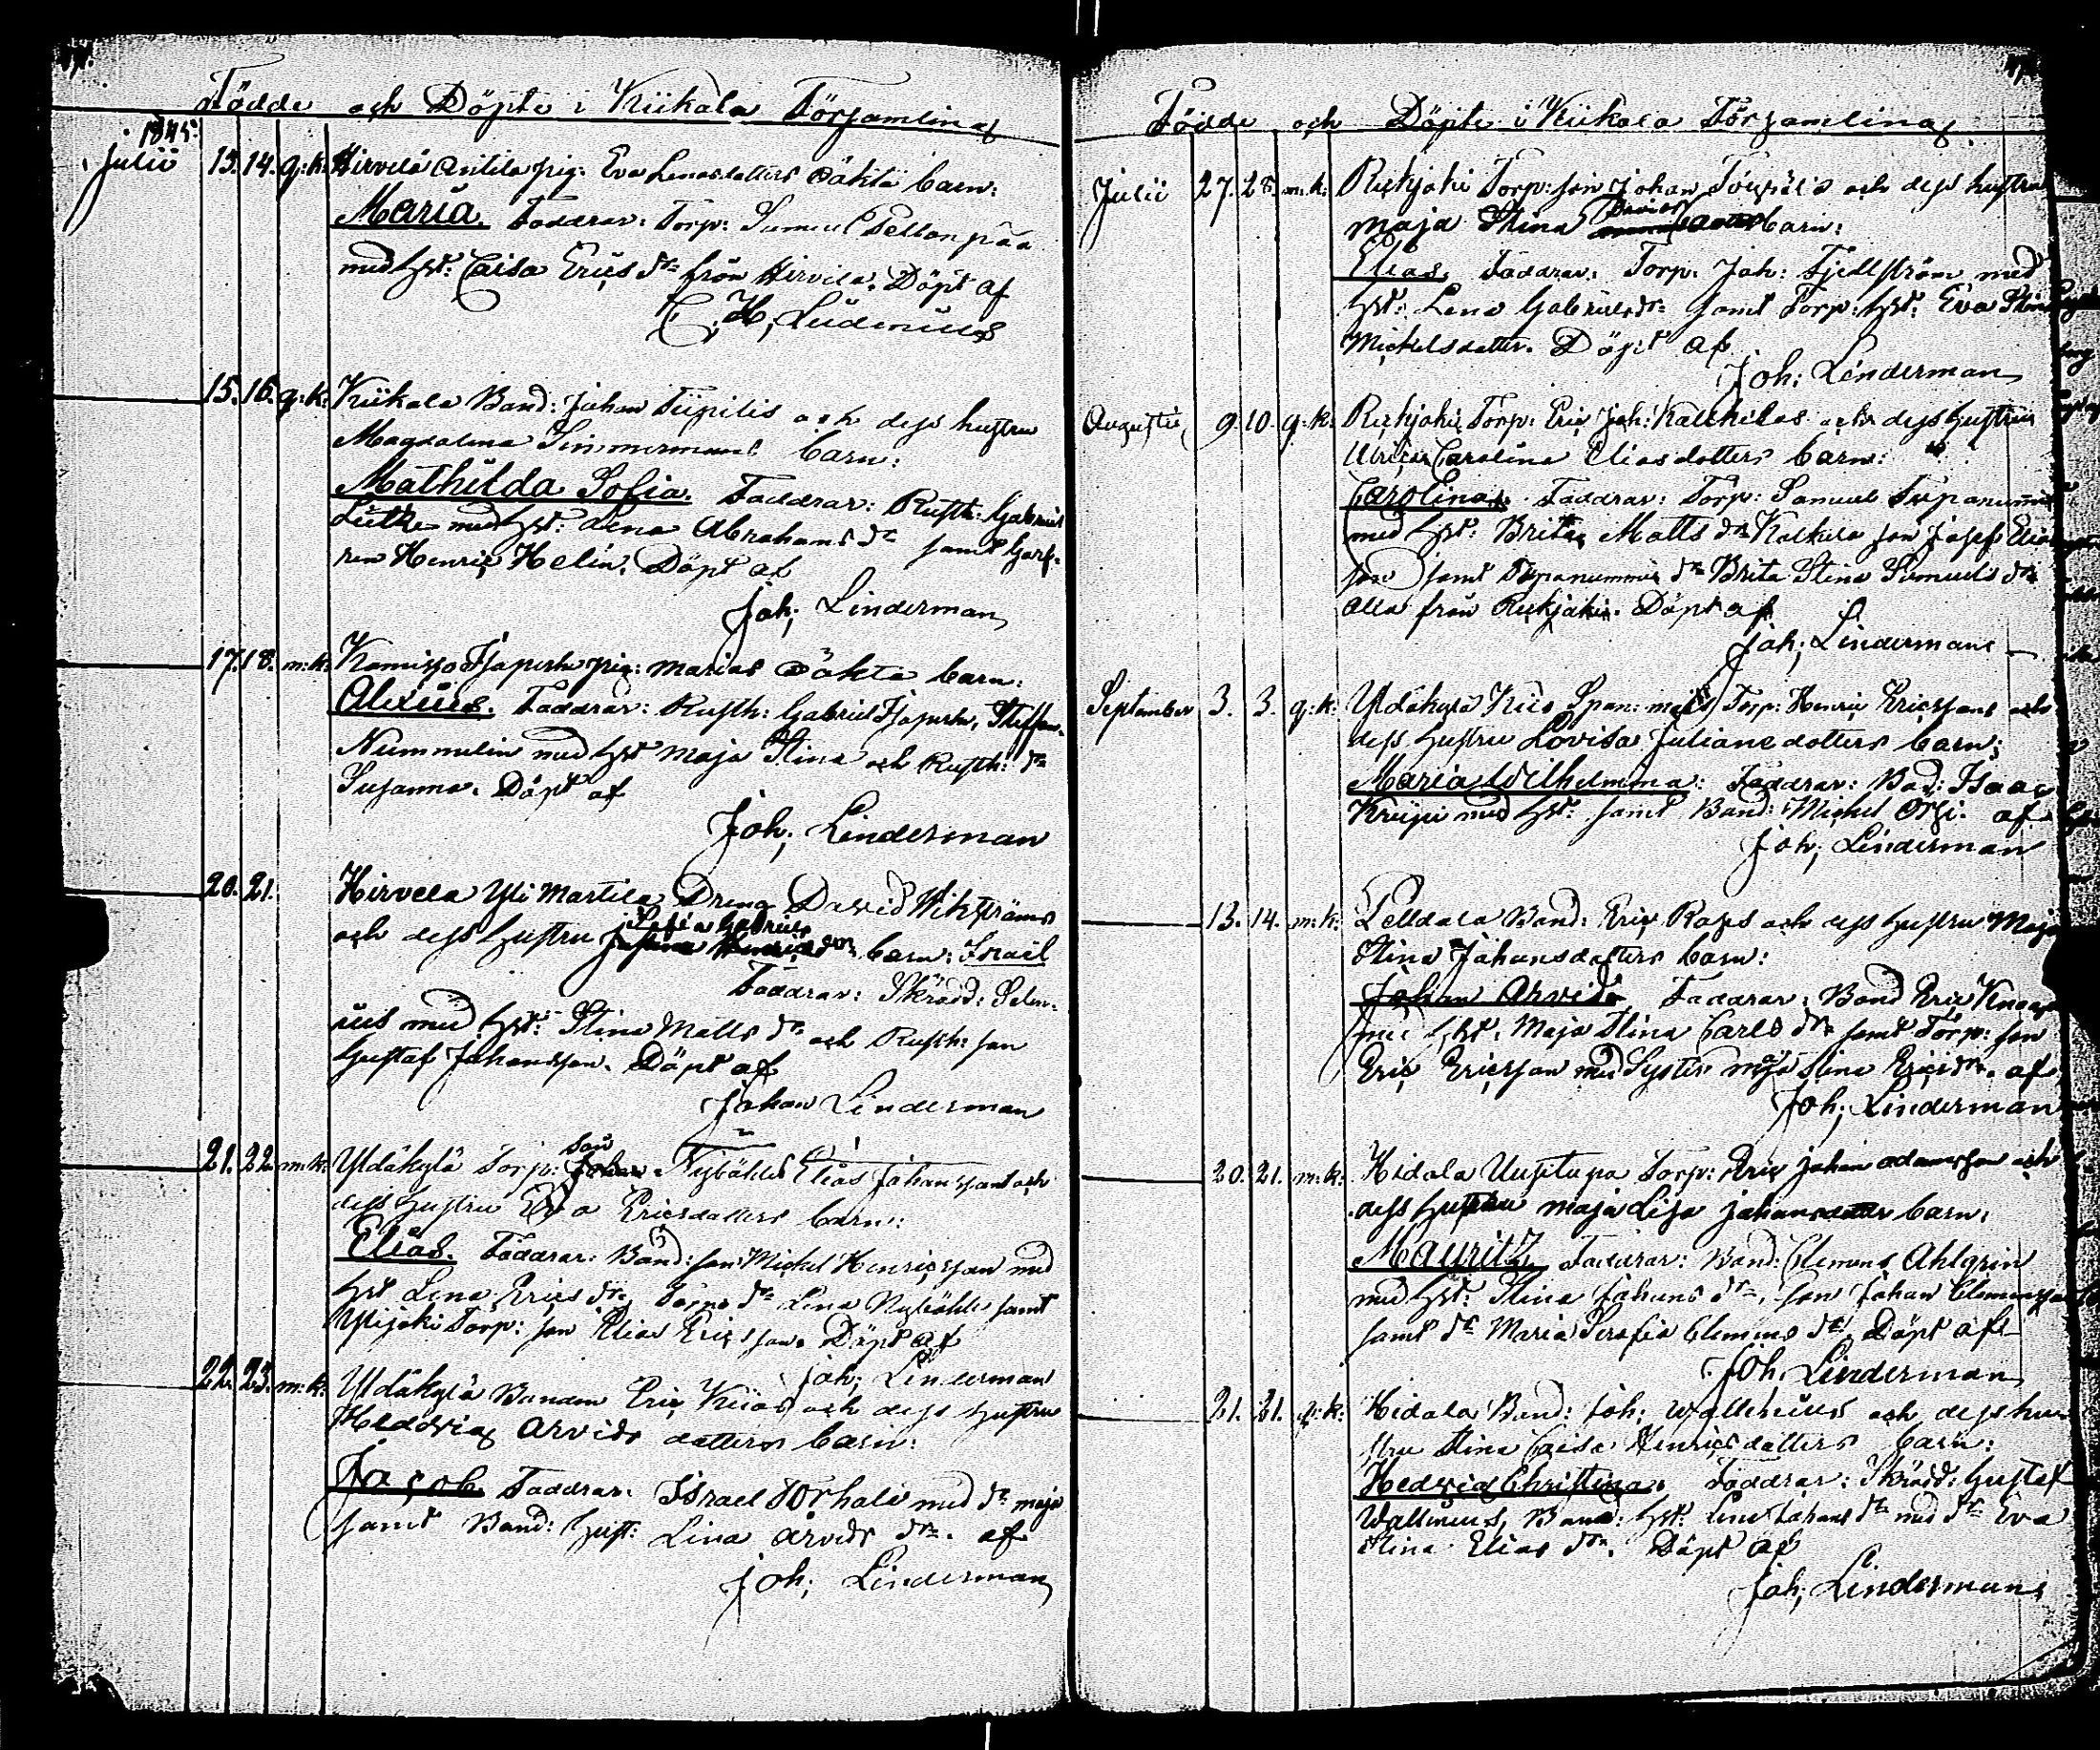 Födde och Döpte i Kiikala Församling
1845.
Julii 13. 14. q: k: Hirvelä Anttila pig. Eva Lenasdotters oäkta barn:
Maria. Faddrar: Torp: Samuel Pellon pää
med hst: Caisa Erics dr från Hirvelä. Döpt af
C, H, Lüdenius
15. 16. q: k: Kiikala Bond: Johan Tiipilis och dess hustru
Magdalena Simmermans barn:
Mathilda Sofia. Faddrar: Rusth: Gabriel
med hst: Lena Abrahams dr samt Garf-
ren Henric Helin. Döpt af
Joh; Linderman
17. 18. m: k: pig: Marias oäkta barn:
Alexius. Faddrar: Rusth: Gabriel Steffan
Nummelin med hst Maja Stina och Rusth: dr
Susanna. Döpt af
Joh; Linderman
20. 21. Hirvelä Yli Marttila Dreng David Wikströms
och dess hustru Sofia Gabriels dr barn: Israil
Faddrar: Skrädd: Selen-
ius med hst: Stina Matts dr och Rusth: son
Gustaf Johansson. Döpt af
Johan Linderman
21. 22. m: k: Yldäkylä Torp: son Elias Johanssons och
dess hustru Eva Ericsdotters barn:
Elias. Faddrar: Bond: son Michel Henricsson med
hst Lena Erics dr, Torp: dr Lena samt
Ylijoki Torp: son Elias Ericsson. Döpt af
Joh; Linderman
22. 23. m: k: Yldäkylä Bonden Eric Kiias och dess hustru
Hedvig Arvids dotters barn:
Jacob. Faddrar: Israel Torhali med dr Maja
samt Bond: hust: Lina Arvids dr. af
Joh; Linderman
Födde och Döpte i Kiikala Församling
Julii 27. 28. m: k: Rekijoki Torp: son Johan och dess hustru
Maja Stina barn:
Elias. Faddrar: Torp: Joh: Fjellström med
hst: Lena Gabriels dr samt Torp: hst: Eva Stina
Michelsdotter. Döpt af
Joh; Linderman
Augusti, 9. 10. q: k: Rekijoki Torp: Eric Joh: Kalkkilas och dess hustru
Ulrica Carolina Eliasdotters barn:
Carolina. Faddrar: Torp: Samuel
med hst: Brita Matts dr Kalkila son Josef Elias
son samt dr Brita Stina Samuels dr
alla från Rekijoki. Döpt af
Joh; Linderman
September 3. 3. q: k: Yldäkylä Kiio Torp: Henric Ericssons och
dess hustru Lovisa Julianedotters barn;
Maria Wilhelmina: Faddrar: Bond: Isaac
med hst: samt Bond: Michel af
Joh; Linderman
13. 14. m: k: Pelldala Bond: Eric och dess hustru Maja
Stina Johansdotters barn:
Johan Arvid Faddrar: Bond Eric
hst: Maja Stina Carls dr samt Torp: son
Eric Ericsson med Syster Maja Stina Erics dr. af
Joh; Linderman
20. 21. m: k: Hidala Uusitupa Torp: Eric Johan Adamsson och
dess hustru Maja Lisa Johansdotter barn.
Mauritz. Faddrar: Bond: Clemens Ahlgrén
med hst: Stina Johans dr, son Johan Clemensson
samt dr Maria Serafia Clemens dr Döpt af
Joh, Linderman
21. 21. q: k: Hidala Bond: Joh; Wallenius och dess hu-
stru Stina Caisa Henricsdotters barn:
Hedvig Christina. Faddrar: Skrädd: Gustaf
Wallenius, Bond: hst: Lena Johans dr med dr Eva
Stina Elias dr. Döpt af
Joh; Linderman